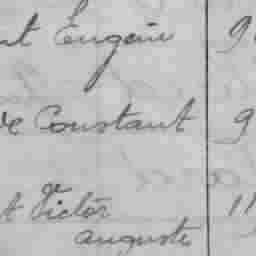 nt Eugène 9
de Constant 9
t Victor 11
auguste